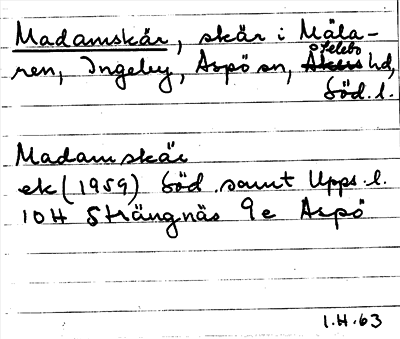 Madamskär, skär i Mäla-
ren, Ingeby, Aspö sn, Åkers Selebo hd,
Söd. l.
Madamskär
ek (1959) Söd. samt Upps. l.
10H Strängnäs 9e Aspö
1.H.63